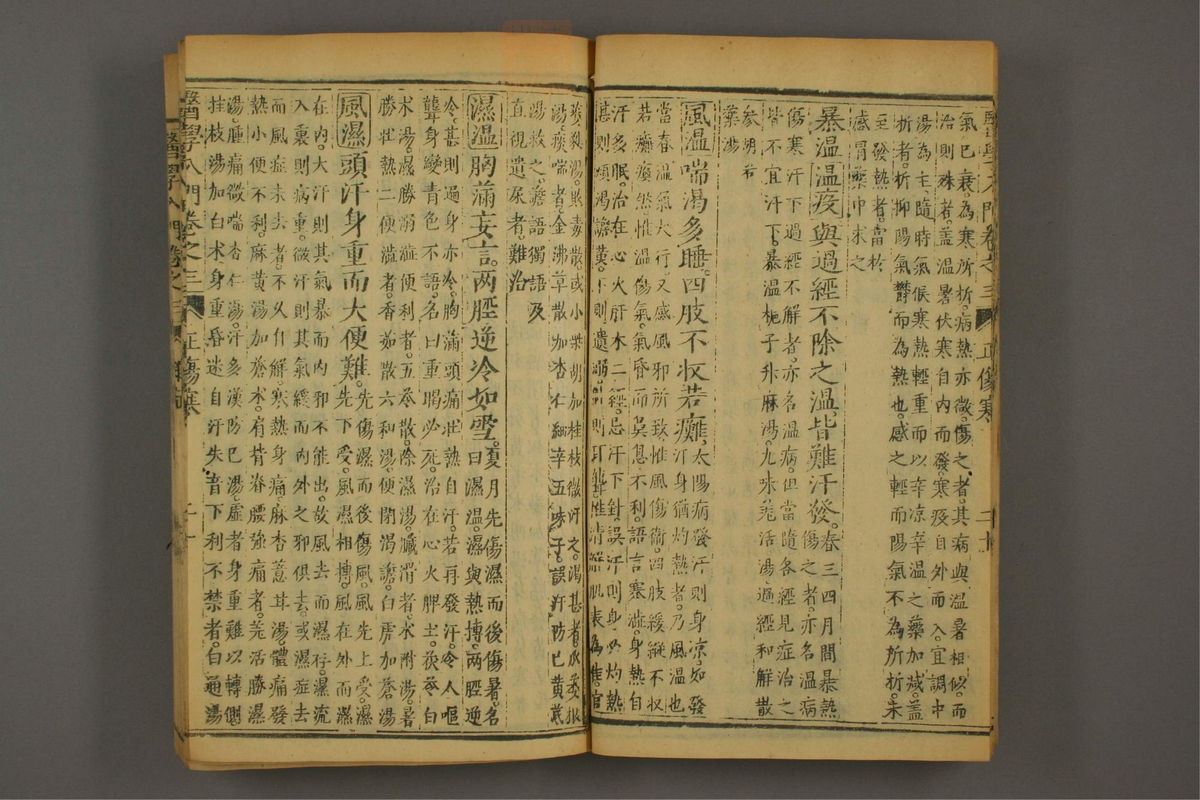 醫學入門卷之三 正傷寒 二十
氣已衰為寒所折病熱亦微傷之者其病與溫暑相似而
治則殊者盖溫暑伏寒自内而發寒疫自外而入宜調中
湯為主隨時氣候寒熱輕重而以辛凉辛溫之藥加减盖
折者折抑陽氣欝而為熱也感之輕而陽氣不為所折未
至發熱者當於
感冒藥中求之
暴溫溫疫與過經不除之溫皆難汗發春三四月間暴熱
傷之者亦名溫病
傷寒汗下過經不解者亦名溫病但當隨各經見症治之
皆不宜汗下暴溫梔子升麻湯九味羌活湯過經和解散
參胡芍
藥湯
風溫喘渴多睡四肢不収若癱太陽病發汗則身凉如發
汗身猶灼熱者乃風溫也
當春溫氣大行又感風邪所致惟風傷衛四肢緩縱不収
若癱瘓然惟溫傷氣氣昏而鼻息不利語言蹇澁身熱自
汗多眠治在心火肝木二經忌汗下針誤汗則身必灼熱
甚則煩渴譫黄下則遺溺針則耳聾惟清解肌表為佳宜
葳蕤湯敗毒散或小柴胡加桂枝微汗之渴甚者瓜蔞根
湯痰喘者金沸草散加杏仁細辛五味子誤汗防已黄芪
湯救之譫語獨語及
直視遺尿者難治
濕溫胸滿妄言两脛逆冷如雪夏月先傷濕而後傷暑名
曰濕溫濕與熱搏两脛逆
冷甚則遍身亦冷胸滿頭痛壯熱自汗若再發汗令人嘔
聾身變青色不語名曰重暍必死治在心火脾土茯苓白
术湯濕勝溺澁便利者五苓散除濕湯臟滑者术附湯暑
勝壮熱二便澁者香茹散六和湯便閉渴譫白虎加蒼湯
風濕頭汗身重而大便難先傷濕而後傷風風先上受濕
先下受風濕相搏風在外而濕
在内大汗則其氣暴而内邪不能出故風去而濕存濕流
入裏則病重微汗則其氣緩而内外之邪俱去或濕症去
而風症未去者不久自解寒熱身痛麻杏薏苡湯體痛發
熱小便不利麻黄湯加蒼术有背脊腰強痛者羌活勝濕
湯腫痛微喘杏仁湯汗多漢防已湯虛者身重難以轉側
桂枝湯加白术身重昏迷自汗失音下利不禁者白通湯
醫學入門卷之三 正傷寒 二十一